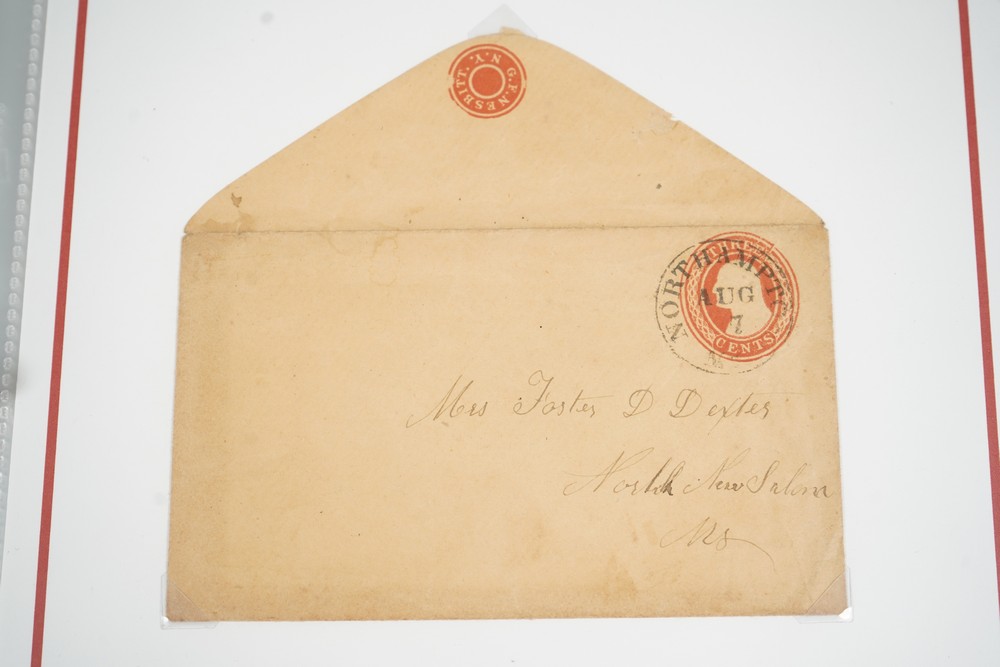 G.F. NESBITT. N.Y.
THREE
CENTS
NORTHAMPTO
AUG
7
Mrs Foster D Dexter
North New Salem
Ms